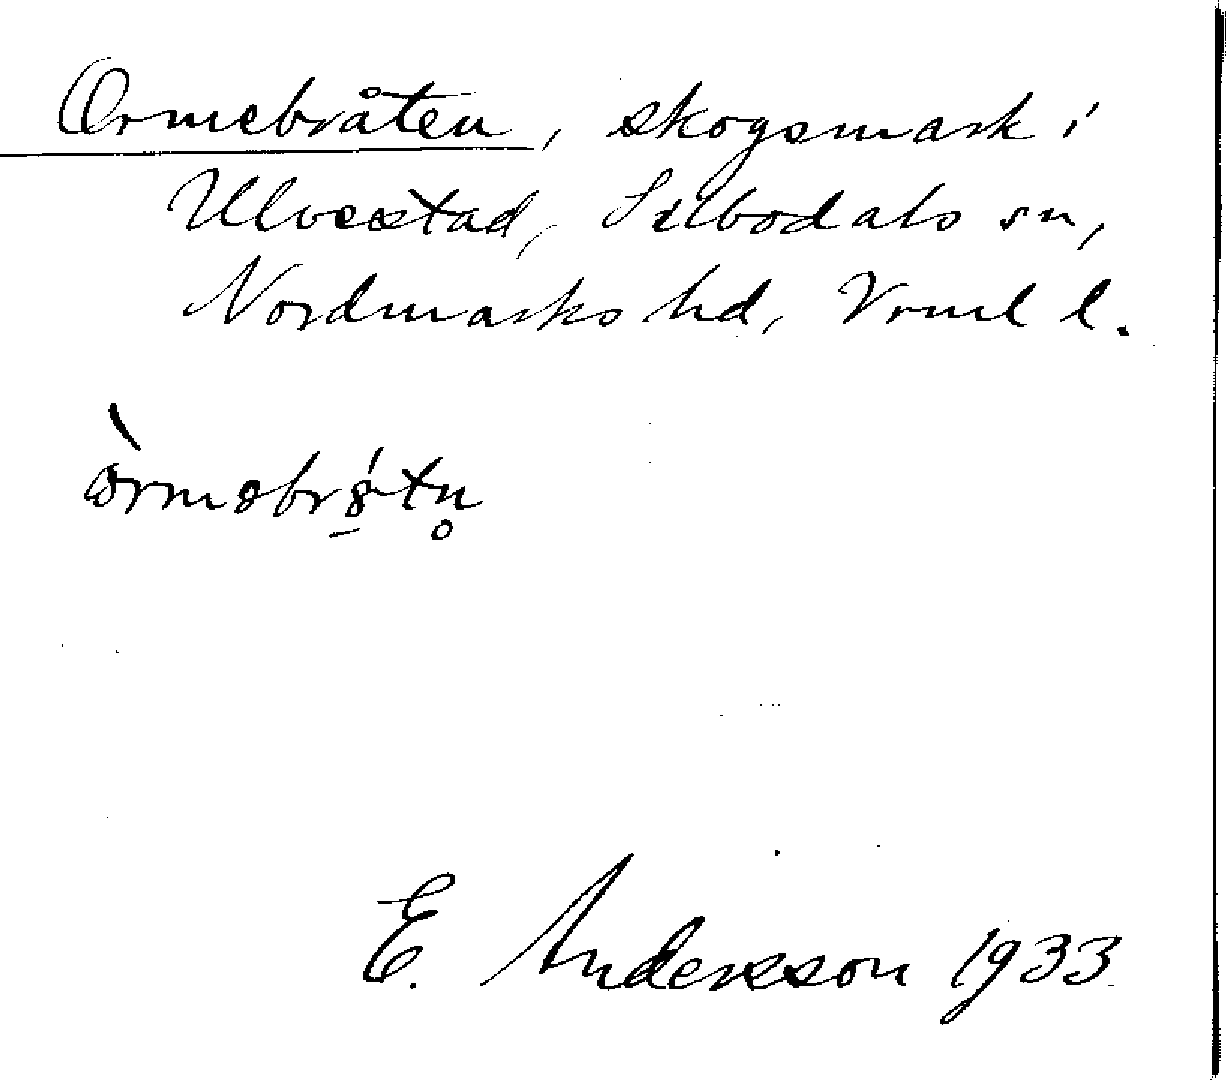 Ormebråten, skogsmark i
Ulvestad, Silbodals sn,
Nordmarks hd, Vrml l.
E. Andersson 1933